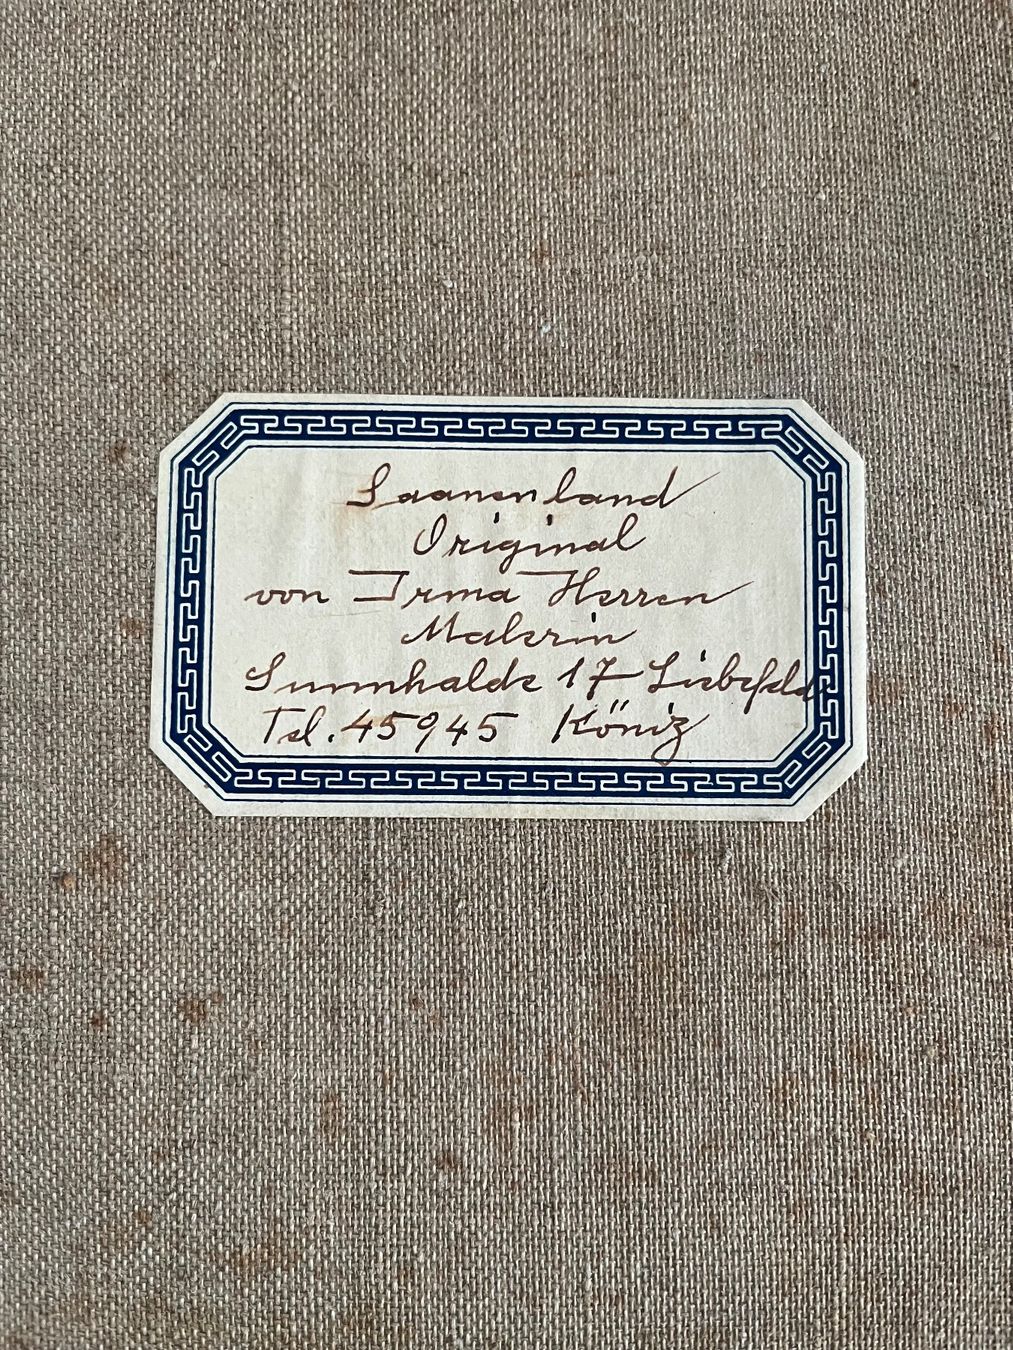 Saanenland
Original
von Irma Herren
Malerin
Sunnhalde 17 Liebefeld
Tel. 45945 Köniz